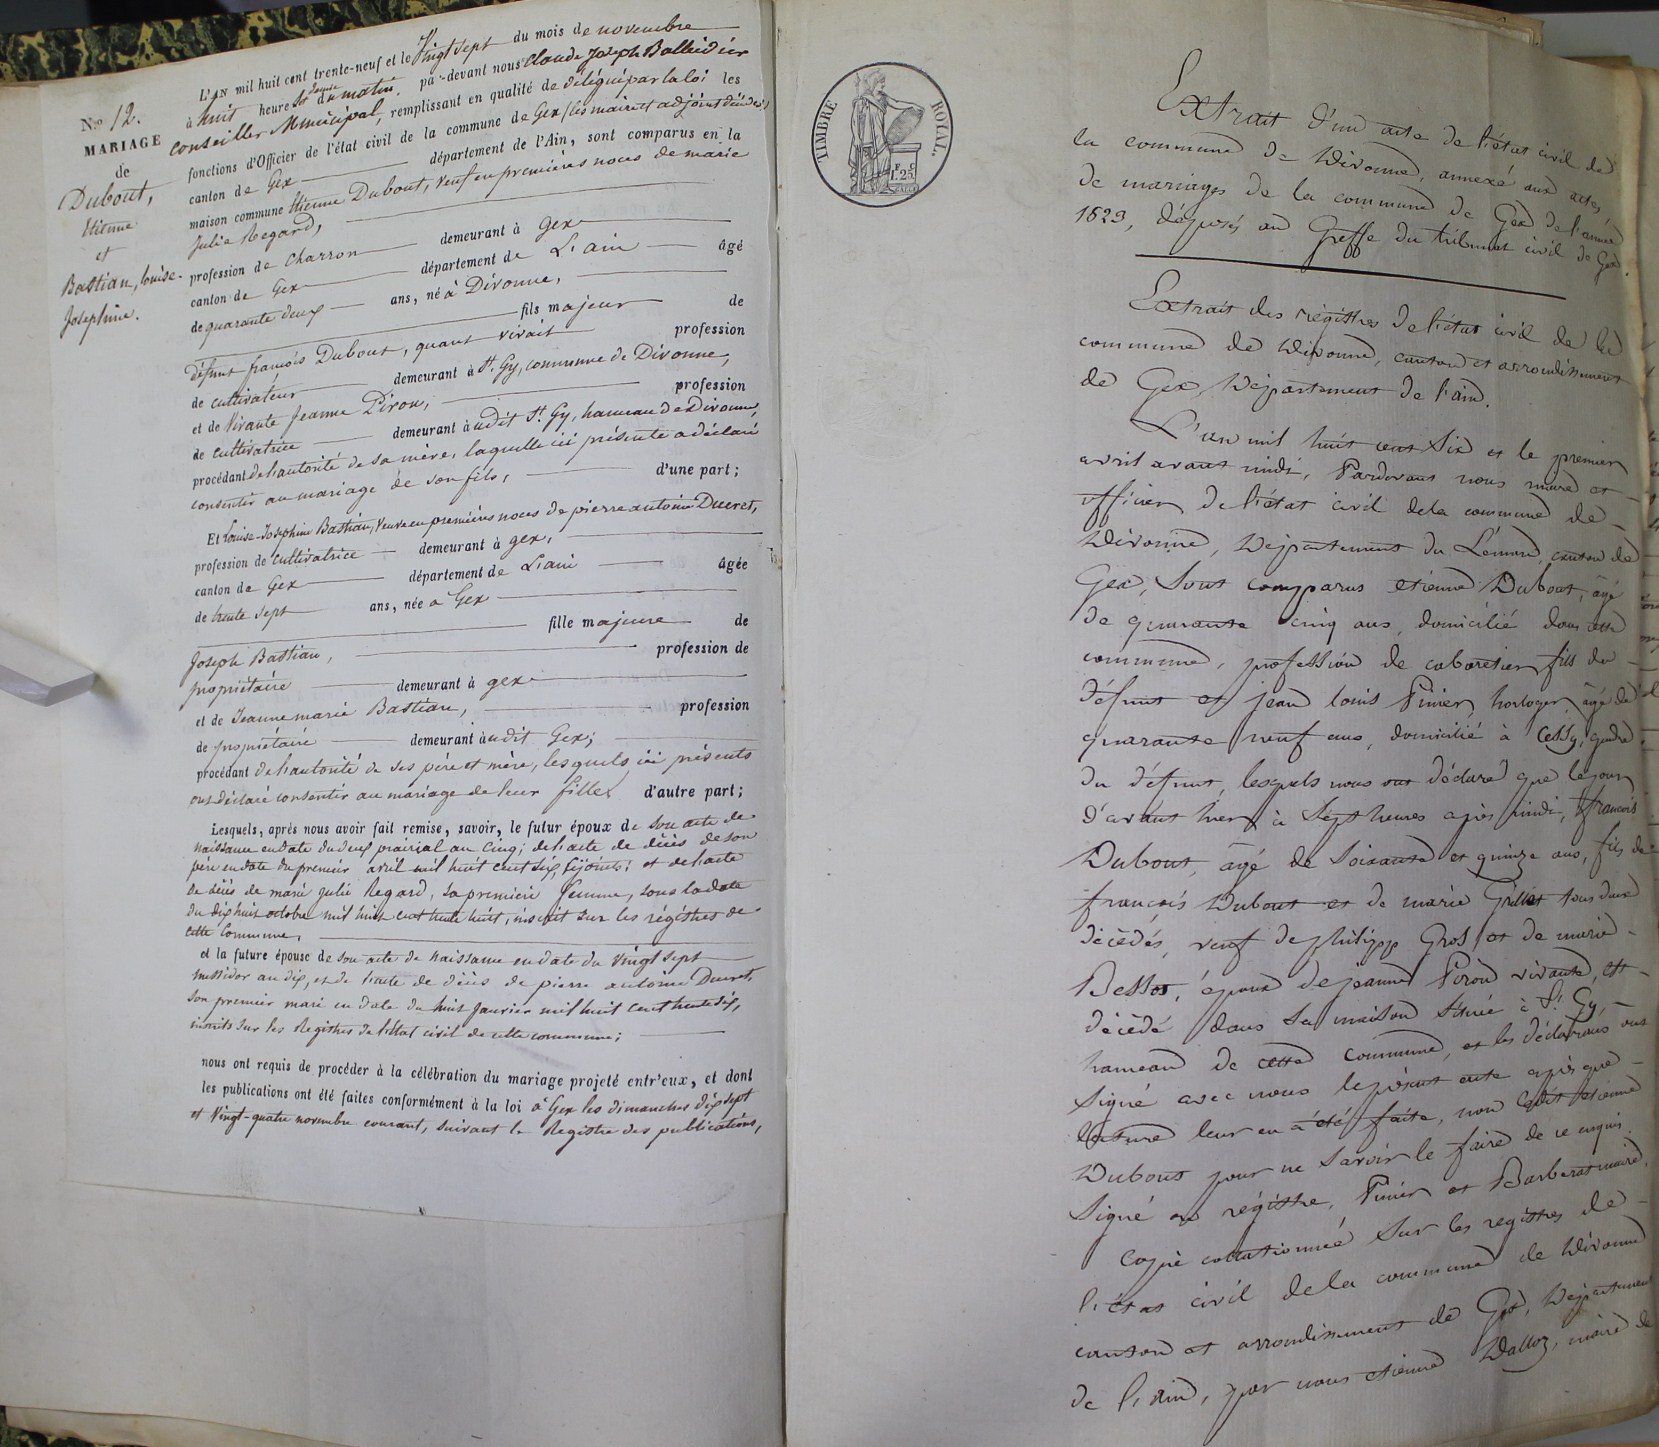 L'AN mil huit cent trente-neuf et le Vingt sept du mois de novembre
à huit heures du matin, par-devant nous Claude Joseph Balliédier
Conseiller Municipal, remplissant en qualité de délégué par la loi les
fonctions d'Officier de l'état civil de la commune de Gex (les maire et adjoint
canton de Gex département de l'Ain, sont comparus en la
maison commune Etienne Dubout, veuf en premières noces de marie
Julie Regard,
profession de charron demeurant à Gex
canton de Gex département de L'ain âgé
de quarante deux ans, né à Divonne,
fils majeur de
défunt françois Dubout, quant vivait profession
de cultivateur demeurant à St. Gy, commune de Divonne,
et de Vivante Jeanne Piron, profession
de cultivatrice demeurant àudit St. Gy, hameau de Divonne,
procédant de l'autorité de sa mère, laquelle ici présente a déclaré
consentir au mariage de son fils, d'une part;
Et Louise-Josephine Bastian, Veuve en premières noces de pierre antoine Ducret,
profession de cultivatrice demeurant à gex,
canton de Gex département de L'ain âgée
de trente sept ans, née à Gex
fille majeure de
Joseph Bastian, profession de
propriétaire demeurant à gex
et de Jeanne marie Bastian, profession
de propriétaire demeurant àudit Gex;
procédant de l'autorité de ses père et mère, lesquels ici présents
ont déclaré consentir au mariage de leur fille, d'autre part;
Lesquels, après nous avoir fait remise, savoir, le futur époux de son acte de
naissance en date du deux prairial an Cinq; de l'acte de décès de son
père en date du premier avril mil huit cent six, ci joints; et de l'acte
de décès de marie julie Regard, sa première femme, sous la date
du dix huit octobre mil huit cent trente huit, inscrit sur les régistres de
cette Commune,
et la future épouse de son acte de naissance en date du vingt sept
messidor an dix, et de l'acte de décès de pierre antoine Ducret,
son premier mari en date du huit Janvier mil huit cent trente six,
inscrits sur les Registres de l'état civil de cette commune;
nous ont requis de procéder à la célébration du mariage projeté entr'eux, et dont
les publications ont été faites conformément à la loi à Gex les dimanches dix sept
et Vingt-quatre novembre courant, suivant le Registre des publications,
N.° 12.
MARIAGE
de
Dubout,
Etienne
et
Bastian, Louise-
Josephine.
TIMBRE ROYAL.
F. C.
1.25.
Extrait d'un acte de l'état civil de
la commune de Divonne, annexé aux actes
de mariages de la commune de Gex de l'année
1829, déposés au Greffe du tribunal civil de Gex.
Extrait des régistres de l'état civil de la
commune de Divonne, canton et arrondissement
de Gex, Département de l'ain.
L'an mil huit cent Six et le premier
avril avant midi, Pardevant nous maire et
officier de l'état civil dela commune de
Divonne, Département du Léman, canton de
Gex, Sont comparus etienne Dubout, âgé
de quarante cinq ans, domicilié dans cette
commune, profession de cabaretier, fils du
défunt et jean louis Pinier, horloger, âgé de
quarante neuf ans, domicilié à Cessy, gendre
du défunt, lesquels nous ont déclaré que le jour
d'avant hier à Sept heures après midi, françois
Dubout, âgé de soixante et quinze ans, fils de
françois Dubout et de marie Grillet tous deux
décédés, veuf de philipp Gros et de marie
Bessos, époux de jeanne Piron vivante, est
décédé dans sa maison située à St. Gy,
hameau de cette commune, et les déclarans ont
signé avec nous le présent acte après que
lecture leur en a été faite, non ledit etienne
Dubout pour ne savoir le faire de ce enquis.
Signé au régistre, Pinier et Barberat maire.
Copie collationnée sur les registres de
l'état civil dela commune de Divonne
canton et arrondissement de Gex, Département
de l'ain, par nous etienne Dalloz, maire de